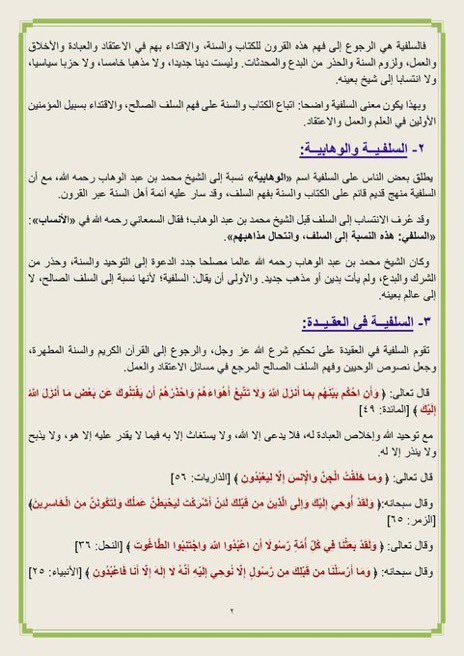 فالسلفية هي الرجوع إلى فهم هذه القرون للكتاب والسنة، والاقتداء بهم في الاعتقاد والعبادة والأخلاق
والعمل، ولزوم السنة والحذر من البدع والمحدثات. وليست دينا جديدا، ولا مذهبا خامسا، ولا حزبا سياسيا،
ولا انتسابا إلى شيخ بعينه.
وبهذا يكون معنى السلفية واضحا: اتباع الكتاب والسنة على فهم السلف الصالح، والاقتداء بسبيل المؤمنين
الأولين في العلم والعمل والاعتقاد.
٢- السلفيــة والوهابيــة:
يطلق بعض الناس على السلفية اسم «الوهابية» نسبة إلى الشيخ محمد بن عبد الوهاب رحمه الله، مع أن
السلفية منهج قديم قائم على الكتاب والسنة بفهم السلف، وقد سار عليه أئمة أهل السنة عبر القرون.
وقد عُرف الانتساب إلى السلف قبل الشيخ محمد بن عبد الوهاب؛ فقال السمعاني رحمه الله في «الأنساب»:
«السلفي: هذه النسبة إلى السلف، وانتحال مذاهبهم».
وكان الشيخ محمد بن عبد الوهاب رحمه الله عالما مصلحا جدد الدعوة إلى التوحيد والسنة، وحذر من
الشرك والبدع، ولم يأت بدين أو مذهب جديد. والأولى أن يقال: السلفية؛ لأنها نسبة إلى السلف الصالح، لا
إلى عالم بعينه.
٣- السلفيــة في العقيـدة:
تقوم السلفية في العقيدة على تحكيم شرع الله عز وجل، والرجوع إلى القرآن الكريم والسنة المطهرة،
وجعل نصوص الوحيين وفهم السلف الصالح المرجع في مسائل الاعتقاد والعمل.
قال تعالى: ﴿ وَأَنِ احْكُم بَيْنَهُم بِمَا أَنزَلَ اللَّهُ وَلَا تَتَّبِعْ أَهْوَاءَهُمْ وَاحْذَرْهُمْ أَن يَفْتِنُوكَ عَن بَعْضِ مَا أَنزَلَ اللَّهُ
إِلَيْكَ ﴾ [المائدة: ٤٩]
مع توحيد الله وإخلاص العبادة له، فلا يدعى إلا الله، ولا يستغاث إلا به فيما لا يقدر عليه إلا هو، ولا يذبح
ولا ينذر إلا له.
قال تعالى: ﴿ وَمَا خَلَقْتُ الْجِنَّ وَالْإِنسَ إِلَّا لِيَعْبُدُونِ ﴾ [الذاريات: ٥٦]
وقال سبحانه:﴿ وَلَقَدْ أُوحِيَ إِلَيْكَ وَإِلَى الَّذِينَ مِن قَبْلِكَ لَئِنْ أَشْرَكْتَ لَيَحْبَطَنَّ عَمَلُكَ وَلَتَكُونَنَّ مِنَ الْخَاسِرِينَ﴾
[الزمر: ٦٥]
وقال تعالى: ﴿ وَلَقَدْ بَعَثْنَا فِي كُلِّ أُمَّةٍ رَّسُولًا أَنِ اعْبُدُوا اللَّهَ وَاجْتَنِبُوا الطَّاغُوتَ ﴾ [النحل: ٣٦]
وقال سبحانه: ﴿ وَمَا أَرْسَلْنَا مِن قَبْلِكَ مِن رَّسُولٍ إِلَّا نُوحِي إِلَيْهِ أَنَّهُ لَا إِلَهَ إِلَّا أَنَا فَاعْبُدُونِ ﴾ [الأنبياء: ٢٥]
٢